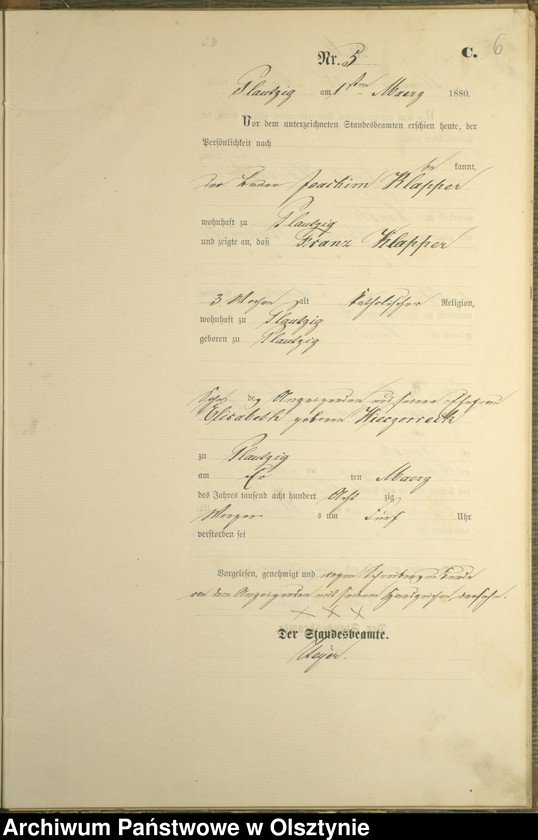 6
C.
Nr. 5
Plautzig am 1ten Maerz 1880.
Vor dem unterzeichneten Standesbeamten erschien heute, der
Persönlichkeit nach
be kannt,
der Joachim Klapper
wohnhaft zu Plautzig
und zeigte an, daß Franz Klapper
3 Wochen alt katholischer Religion,
wohnhaft zu Plautzig
geboren zu Plautzig
Sohn des Anzeigenden und seiner Ehefrau
Elisabeth geborene
zu Plautzig
am ten Maerz
des Jahres tausend acht hundert Acht zig
Morgen s um fünf Uhr
verstorben sei
Vorgelesen, genehmigt und wegen Schreibensunkunde
von dem Anzeigenden mit seinem Handzeichen versehen.
XXX
Der Standesbeamte.